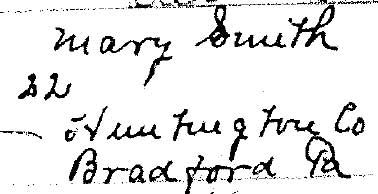 Mary Smith
22
Huntington Co
Bradford Pa